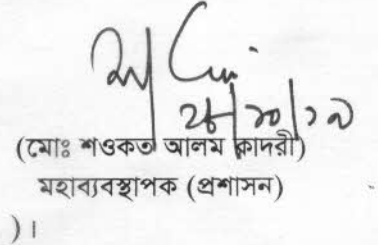 ২৮/১০/১৯
(মোঃ শওকত আলম কাদরী)
মহাব্যবস্থাপক (প্রশাসন)
)।